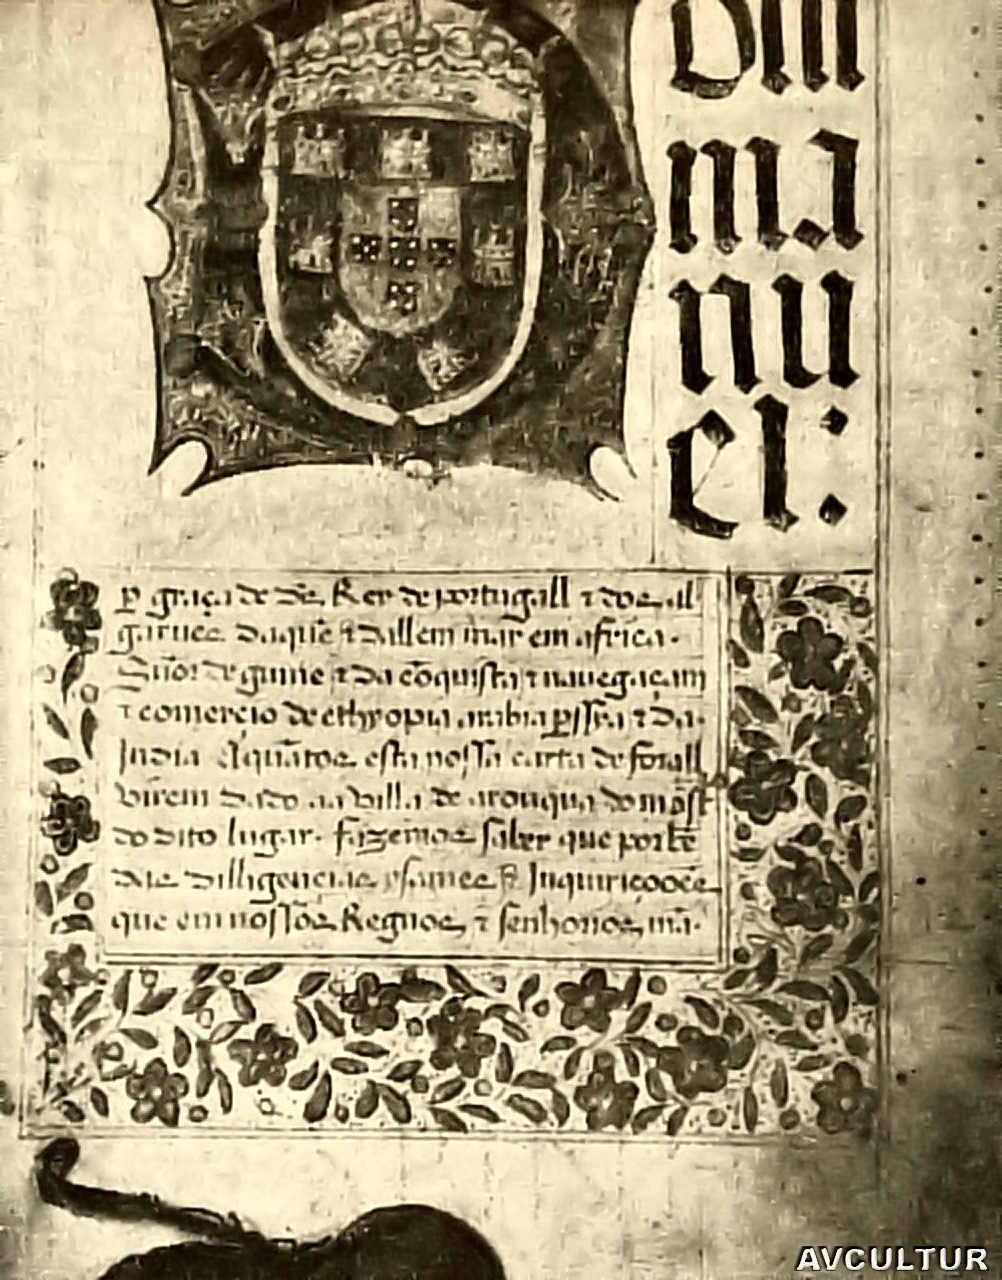 Dm
ma
nu
el:
per graça de ds̃ Rey de portugall ⁊ dos al
garues daquẽ ⁊ dallem mar em africa.
Sñor de guine ⁊ da cõquista ⁊ nauegaçam
⁊ comerçio de ethyopia arabia perssia ⁊ da.
India Aquãtos esta nossa carta de forall
virem dado aa villa de arouqua do mostr̃
do dito lugar. fazemos saber que por bẽ
das dilligençias ysames ⁊ Inquiriçoões
que em nossos Regnos ⁊ senhorios mã.
AVCULTUR